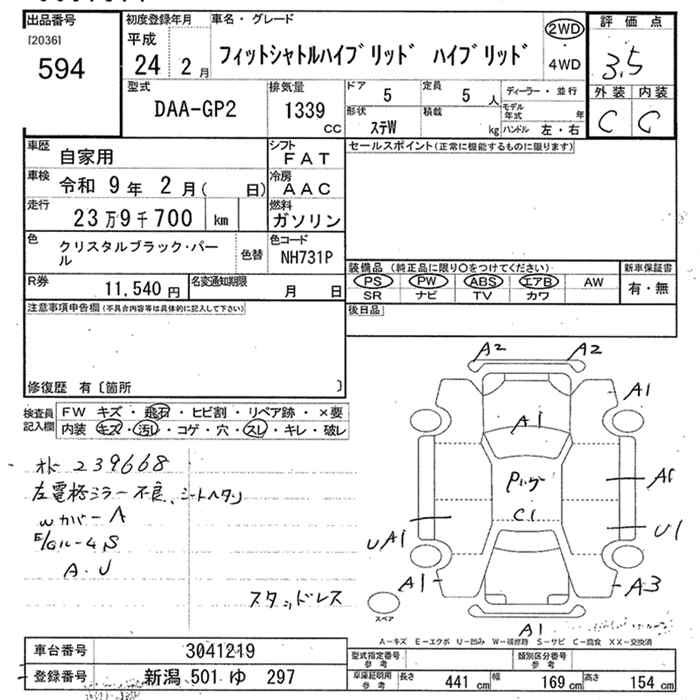 出品番号
[2036]
594
初度登録年月
平成
24 2月
車名・グレード
フィットシャトルハイブリッド ハイブリッド
2WD
・
4WD
評価点
3.5
外装 内装
C C
型式
DAA-GP2
排気量
1339
CC
ドア
5
定員
5人
形状
ステW
積載
kg
ディーラー・並行
モデル年式 年
ハンドル 左・右
車歴
自家用
シフト
FAT
車検
令和 9年 2月( 日)
冷房
AAC
走行
23万9千700 km
燃料
ガソリン
色
クリスタルブラック・パール
色替
色コード
NH731P
R券
11,540円
名変通知期限
月 日
セールスポイント(正常に機能するものに限ります)
装備品 (純正品に限り○をつけてください)
新車保証書
PS PW ABS エアB AW
有・無
SR ナビ TV カワ
後日品
注意事項申告欄(不具合内容等は具体的に記入して下さい)
修復歴 有〔箇所 〕
検査員記入欄
FW キズ・飛石・ヒビ割・リペア跡・×要
内装 キズ・汚レ・コゲ・穴・スレ・キレ・破レ
オド 239668
左電格ミラー不良、シートヘタリ
Wカバー A
A.U
スタッドレス
A2 A2
A1
A1
A1
C1
UA1
U1
A1
A3
A1
スペア
A-キズ E-エクボ U-凹み W-補修跡 S-サビ C-腐食 XX-交換済
車台番号
3041219
登録番号
新潟 501 ゆ 297
型式指定番号
参考
類別区分番号
参考
車庫証明用
参考
長さ 441cm 幅 169cm 高さ 154cm